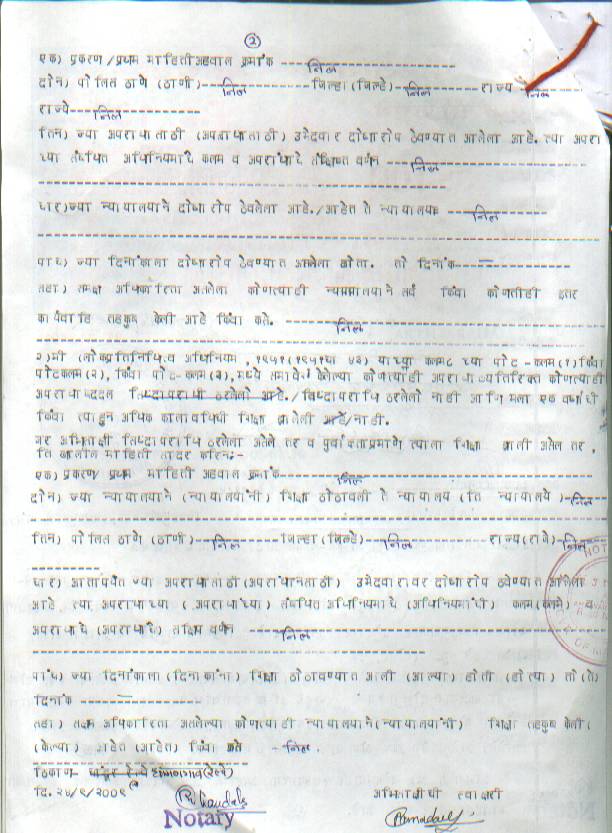 (२)
एक) प्रकरण /प्रथम माहिती अहवाल क्रमांक --- निल
दोन) पोलिस ठाणे (ठाणी)--- निल ---जिल्हा (जिल्हे)--- निल --- राज्य -- निल
राज्ये--- निल
तिन) ज्या अपराधासाठी (अपराधासाठी) उमेदवार दोषारोप ठेवण्यात आलेला आहे. त्या अपरा
ध्या संबंधित अधिनियमाचे कलम व अपराधाचे संक्षिप्त वर्णन --- निल
चार)ज्या न्यायालयाने दोषारोप ठेवलेला आहे./आहेत ते न्यायालय --- निल
पाच) ज्या दिनांकाला दोषारोप ठेवण्यात आलेला होता. तो दिनांक--- —
सहा) सक्षम अधिकारिता असलेला कोणत्याही न्यायालयाने सर्व किंवा कोणतीही इतर
कार्यवाहि तहकुब केली आहे किंवा कसे. --- निल
२)मी (लोकप्रतिनिधित्व अधिनियम ,१९५१(१९५१चा ४३) याच्या कलम८ च्या पोट-कलम(१)किंवा
पोटकलम(२), किंवा पोट-कलम(३),मध्ये समाविष्ट केलेल्या कोणत्याही अपराधा व्यतिरिक्त कोणत्याही
अपराधाबद्दल सिध्दापराधी ठरलेलो आहे./सिध्दापराधि ठरलेलो नाही आणि मला एक वर्षाची
किंवा त्याहुन अधिक कालावधिची शिक्षा झालेली आहे/नाही.
जर अभिसाक्षी सिध्दापराधि ठरलेला असेल तर व पुर्वोक्ताप्रमाणे त्याला शिक्षा झाली असेल तर ,
ति खालील माहिती सादर करिन:-
एक) प्रकरण/ प्रथम माहीती अहवाल क्रमांक--- निल
दोन) ज्या न्यायालयाने (न्यायालयांनी) शिक्षा ठोठावली ते न्यायालय (ति न्यायालये )- निल
तिन) पोलिस ठाणे (ठाणी)--- निल ---जिल्हा(जिल्हे)--- निल --- राज्य(राजे)- निल
चार) आतापर्यंत ज्या अपराधासाठी(अपराधानसाठी) उमेदवारावर दोषारोप ठवेण्यात आलेला
आहे त्या अपराधाच्या ( अपराधाच्या) संबंधित अधिनियमाचे (अधिनियमांची) कलम(कलमे) व
अपराधाचे (अपराधाचे) संक्षिप्त वर्णन --- निल
पांच) ज्या दिनांकाला (दिनाकांना) शिक्षा ठोठावण्यात आली (आल्या) होती (होत्या) तो(ते)
दिनांक --- —
सहा) सक्षम अधिकारिता असलेल्या कोणत्याही न्यायालयाने(न्यायालयांनी) शिक्षा तहकुब केली(
(केल्या) आहेत (आहेत) किंवा कसे - निल .
ठिकाण- चांदूर रेल्वे धामणगाव(रेल्वे)
दि. २४/९/२००९
अभिसाक्षीची स्वाक्षरी
Notary